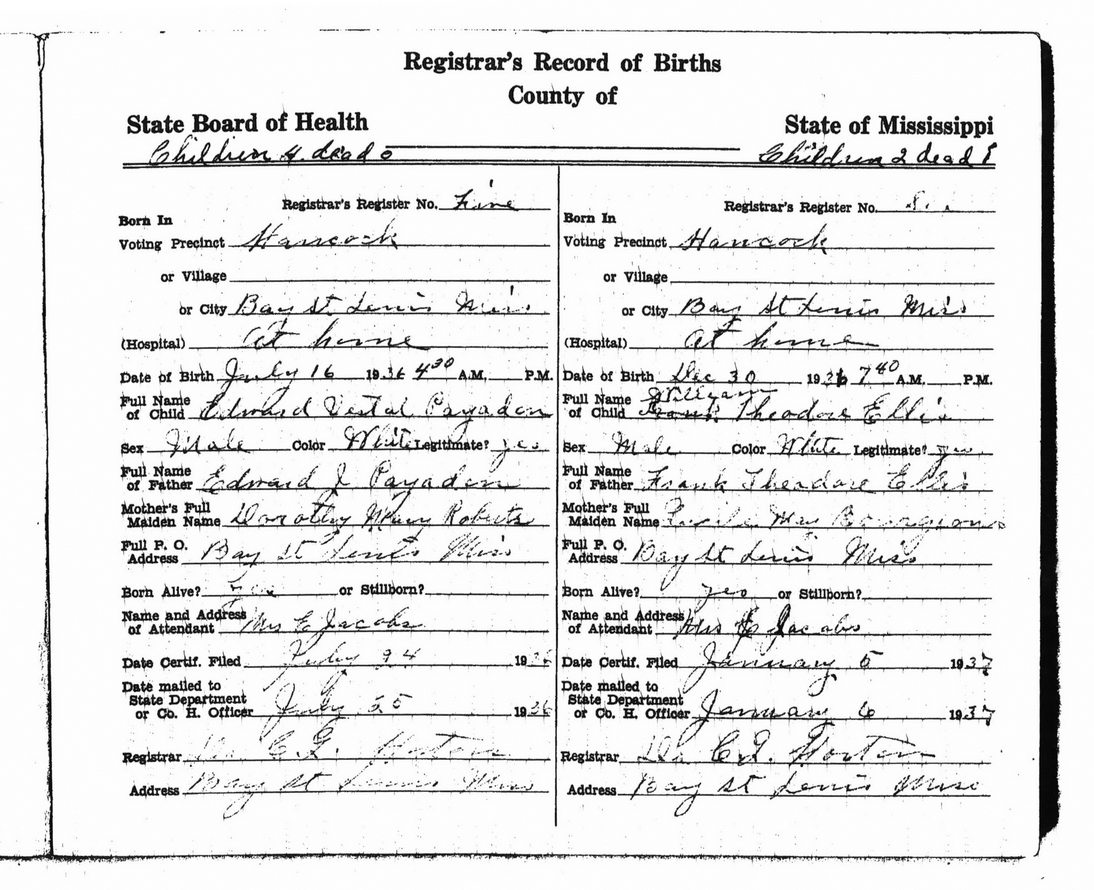 Registrar's Record of Births
County of
State Board of Health
State of Mississippi
Children 4 dead 0
Registrar's Register No. Five
Born In
Voting Precinct Hancock
or Village
or City Bay St Louis Miss
(Hospital) At home
Date of Birth July 16 1936 4 30 A.M. P.M.
Full Name
of Child Edward Vestal Payadon
Sex Male Color White Legitimate? yes
Full Name
of Father Edward J Payadon
Mother's Full
Maiden Name Dorothy Mary Roberts
Full P. O.
Address Bay St Louis Miss
Born Alive? yes or Stillborn?
Name and Address
of Attendant Mrs E Jacobs
Date Certif. Filed July 24 1936
Date mailed to
State Department
or Co. H. Officer July 25 1936
Registrar Dr C. Horton
Address Bay St Louis Miss
Children 2 dead 1
Registrar's Register No.
Born In
Voting Precinct Hancock
or Village
or City Bay St Louis Miss
(Hospital) At home
Date of Birth Dec 30 1936 7 40 A.M. P.M.
William
Full Name
of Child Frank Theodore Ellis
Sex Male Color White Legitimate? yes
Full Name
of Father Frank Theodore Ellis
Mother's Full
Maiden Name May Bourgeois
Full P. O.
Address Bay St Louis Miss
Born Alive? yes or Stillborn?
Name and Address
of Attendant Mrs E Jacobs
Date Certif. Filed January 5 1937
Date mailed to
State Department
or Co. H. Officer January 6 1937
Registrar Dr C. Horton
Address Bay St Louis Miss